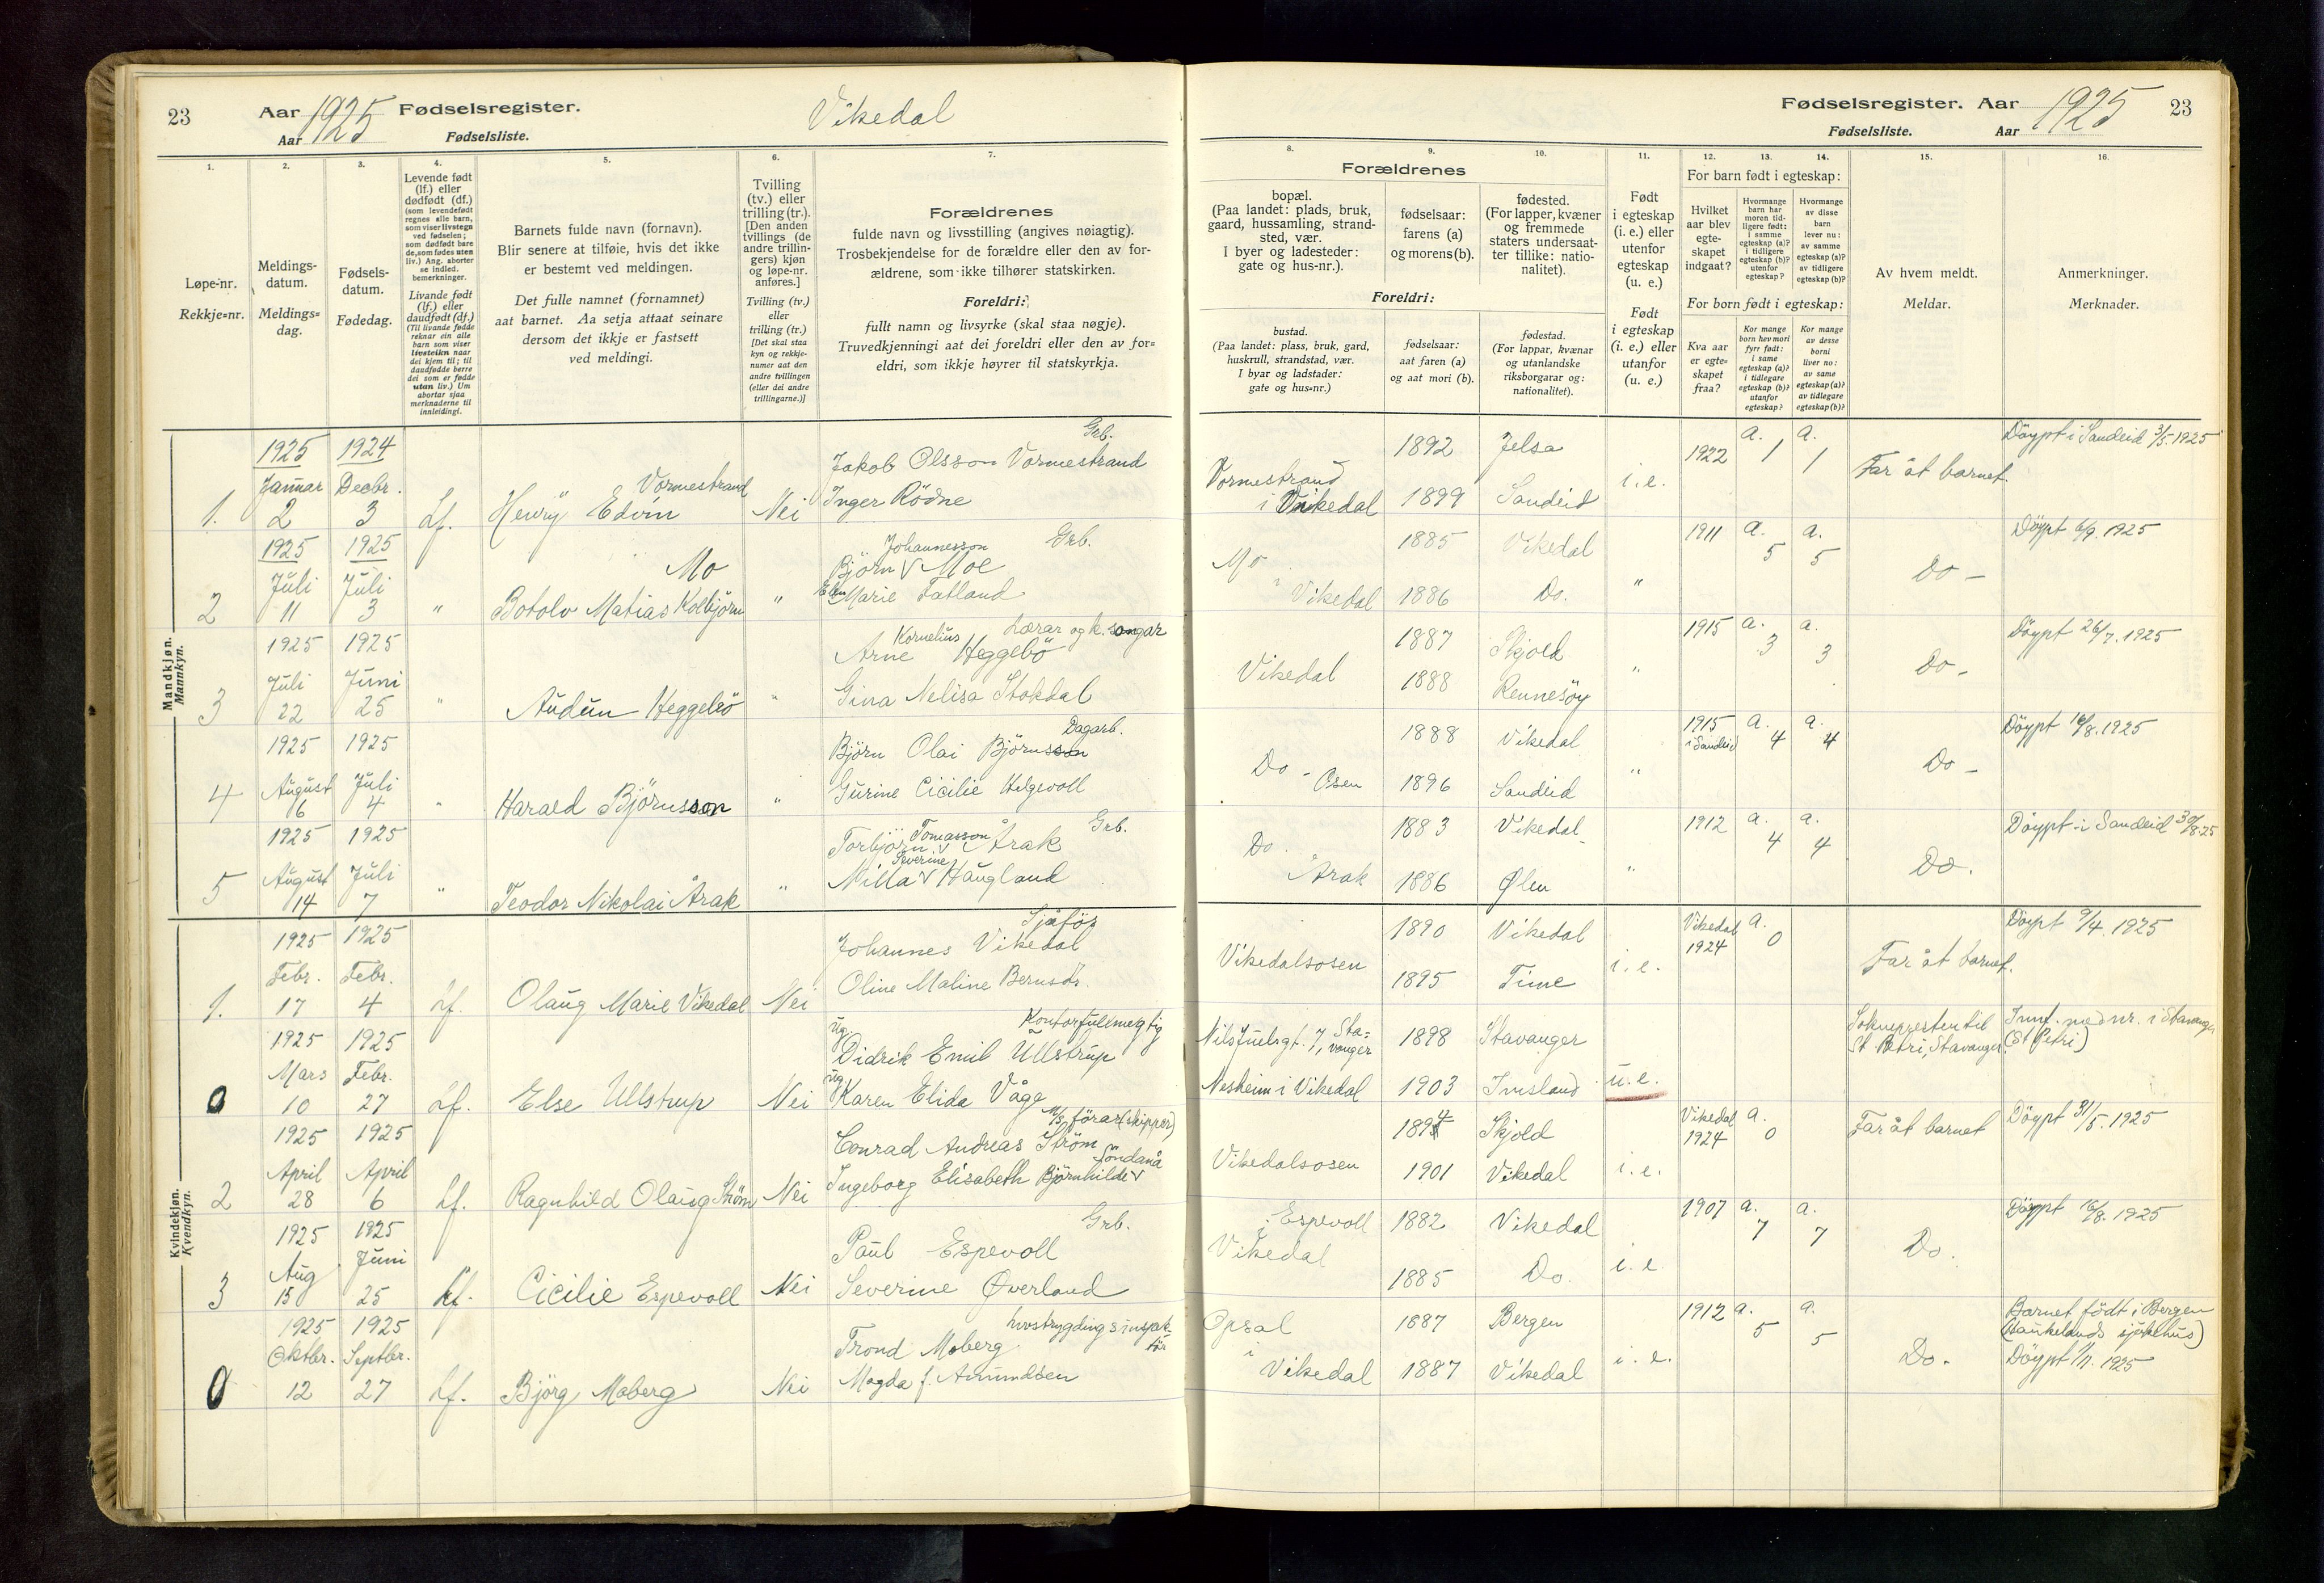 23
Aar 1925 Fødselsregister.
Aar
Fødselsliste.
Vikedal
1.
Løpe-nr.
Rekkje=nr.
2.
Meldings-
datum.
Meldings=
dag.
3.
Fødsels-
datum.
Fødedag.
4.
Levende født
(lf.) eller
dødfødt (df.)
(som levendefødt
regnes alle barn,
som viser livstegn
ved fødselen;
som dødfødt bare
de, som fødes uten
liv.) Ang. aborter
se indled.
bemerkninger.
Livande født
(lf.) eller
daudfødt (df.)
(Til livande fødde
reknar ein alle
barn som viser
livsteikn naar
dei kjem til; til
daudfødde berre
dei som er fødde
utan liv.) Um
abortar sjaa
merknaderne til
innleidingi.
5.
Barnets fulde navn (fornavn).
Blir senere at tilføie, hvis det ikke
er bestemt ved meldingen.
Det fulle namnet (fornamnet)
aat barnet. Aa setja attaat seinare
dersom det ikkje er fastsett
ved meldingi.
6.
Tvilling
(tv.) eller
trilling (tr.).
[Den anden
tvillings (de
andre trillin-
gers) kjøn
og løpe-nr.
anføres.]
Tvilling (tv.)
eller
trilling (tr.)
[Det skal staa
kyn og rekkje-
numer aat den
andre tvillingen
(eller dei andre
trillingarne.)]
7.
Forældrenes
fulde navn og livsstilling (angives nøiagtig).
Trosbekjendelse for de forældre eller den av for-
ældrene, som ikke tilhører statskirken.
Foreldri:
fullt namn og livsyrke (skal staa nøgje).
Truvedkjenningi aat dei foreldri eller den av for=
eldri, som ikkje høyrer til statskyrkja.
Mandkjøn.
Mannkyn.
1925 1924
Grb.
Januar Decbr. Vormestrand Jakob Olsson Vormestrand
1. 2 3 Lf. Henrÿ Edvin Nei Inger Rödne
1925 1925
Johannesson Grb.
Juli Juli Mo Björn v Moe
2 11 3 " Botolv Matias Kolbjörn " Elen Marie Fatland
1925 1925
Kornelius Lærar og k. songar
Juli Juni Arne Heggebö
3 22 25 " Audun Heggebö " Gina Nelisa Stokdal
1925 1925
Dagarb.
August Juli Björn Olai Björnsson
4 6 4 " Harald Björnsson " Gurine Cicilie Helgevoll
1925 1925
Tomasson Grb.
August Juli Torbjörn v Årak
Severine
5 14 7 " Teodor Nikolai Årak " Milla v Haugland
Kvindekjøn.
Kvendkyn.
1925 1925
Sjåför
Febr. Febr. Johannes Vikedal
1. 17 4 Lf. Olaug Marie Vikedal Nei Oline Maline Bernsdr.
1925 1925
Ug. Kontorfullmegtig
Mars Febr. Didrik Emil Ullstrup
0 10 27 Lf. Else Ullstrup Nei Ug. Karen Elida Våge
1925 1925
M/S förar (skipper)
April April Conrad Andreas Ström
Söndanå
2 28 6 Lf. Ragnhild Olaug Ström Nei Ingeborg Elisabeth Björnhilde v
1925 1925
Grb.
Aug Juni Paul Espevoll
3 15 25 Lf. Cicilie Espevoll Nei Severine Øverland
1925 1925
Oktbr. Septbr. Trond Moberg
0 12 27 Lf. Björg Moberg Nei Magda f. Amundsen
Fødselsregister. Aar 1925
23
Fødselsliste.
Aar
8.
Forældrenes
bopæl.
(Paa landet: plads, bruk,
gaard, hussamling, strand-
sted, vær.
I byer og ladesteder:
gate og hus-nr.).
Foreldri:
bustad.
(Paa landet: plass, bruk, gard,
huskrull, strandstad, vær.
I byar og ladstader:
gate og hus=nr.)
9.
fødselsaar:
farens (a)
og morens (b).
fødselsaar:
aat faren (a)
og aat mori (b).
10.
fødested.
(For lapper, kvæner
og fremmede
staters undersaat-
ter tillike: natio-
nalitet).
fødestad.
(For lappar, kvænar
og utanlandske
riksborgarar og:
nationalitet).
11.
Født
i egteskap
(i. e.) eller
utenfor
egteskap
(u. e.)
Født
i egteskap
(i. e.) eller
utanfor
(u. e.)
12.
13.
14.
For barn født i egteskap:
Hvilket
aar blev
egte-
skapet
indgaat?
Hvormange
barn har
moren tid-
ligere født:
i samme
egteskap (a)?
i tidligere
egteskap (b)?
utenfor
egteskap?
Hvormange
av disse
barn
lever nu:
av samme
egteskap (a)?
av tidligere
egteskap (b)?
For born født i egteskap:
Kva aar
er egte=
skapet
fraa?
Kor mange
born hev mori
fyrr født:
i same
egteskap (a)?
i tidlegare
egteskap (b)?
utanfor
egteskap?
Kor mange
av desse
borni
liver no:
av same
egteskap (a)?
av tidlegare
egteskap (b)?
15.
Av hvem meldt.
Meldar.
16.
Anmerkninger.
Merknader.
1892 Jelsa 1922 a. 1 a. 1 Döypt i Sandeid 3/5. 1925
Vormestrand
i Vikedal 1899 Sandeid i.e. Far åt barnet.
1885 Vikedal 1911 a. 5 a. 5 Döypt 6/9. 1925
Mo
i Vikedal 1886 Do. " Do –
1887 Skjold 1915 a. 3 a. 3 Döypt 26/7. 1925
Vikedal 1888 Rennesöy " Do –
1888 Vikedal 1915 i Sandeid a. 4 a. 4 Döypt 16/8. 1925
Do – Osen 1896 Sandeid " Do –
1883 Vikedal 1912 a. 4 a. 4 Döypt i Sandeid 30/8. 25
Do.
Årak 1886 Ølen " Do.
1890 Vikedal Vikedal 1924 a. 0 Döypt 9/4. 1925
Vikedalsosen 1895 Time i. e. Far åt barnet.
Nils Juelsgt. 7, Stavanger 1898 Stavanger Sokneprestentil St. Petri, Stavanger. Innf. med nr. i Stavanger (St Petri)
Nesheim i Vikedal 1903 Imsland u. e.
1894 Skjold Vikedal 1924 a. 0 Far åt barnet Döypt 31/5. 1925
Vikedalsosen 1901 Vikedal i. e.
Espevoll 1882 Vikedal 1907 a. 7 a. 7 Döypt 16/8. 1925
i
Vikedal 1885 Do. i. e. Do.
Opsal 1887 Bergen 1912 a. 5 a. 5 Barnet födt i Bergen
i (Haukelands sjukehus)
Vikedal 1887 Vikedal i. e. Do. Döypt 1/11. 1925